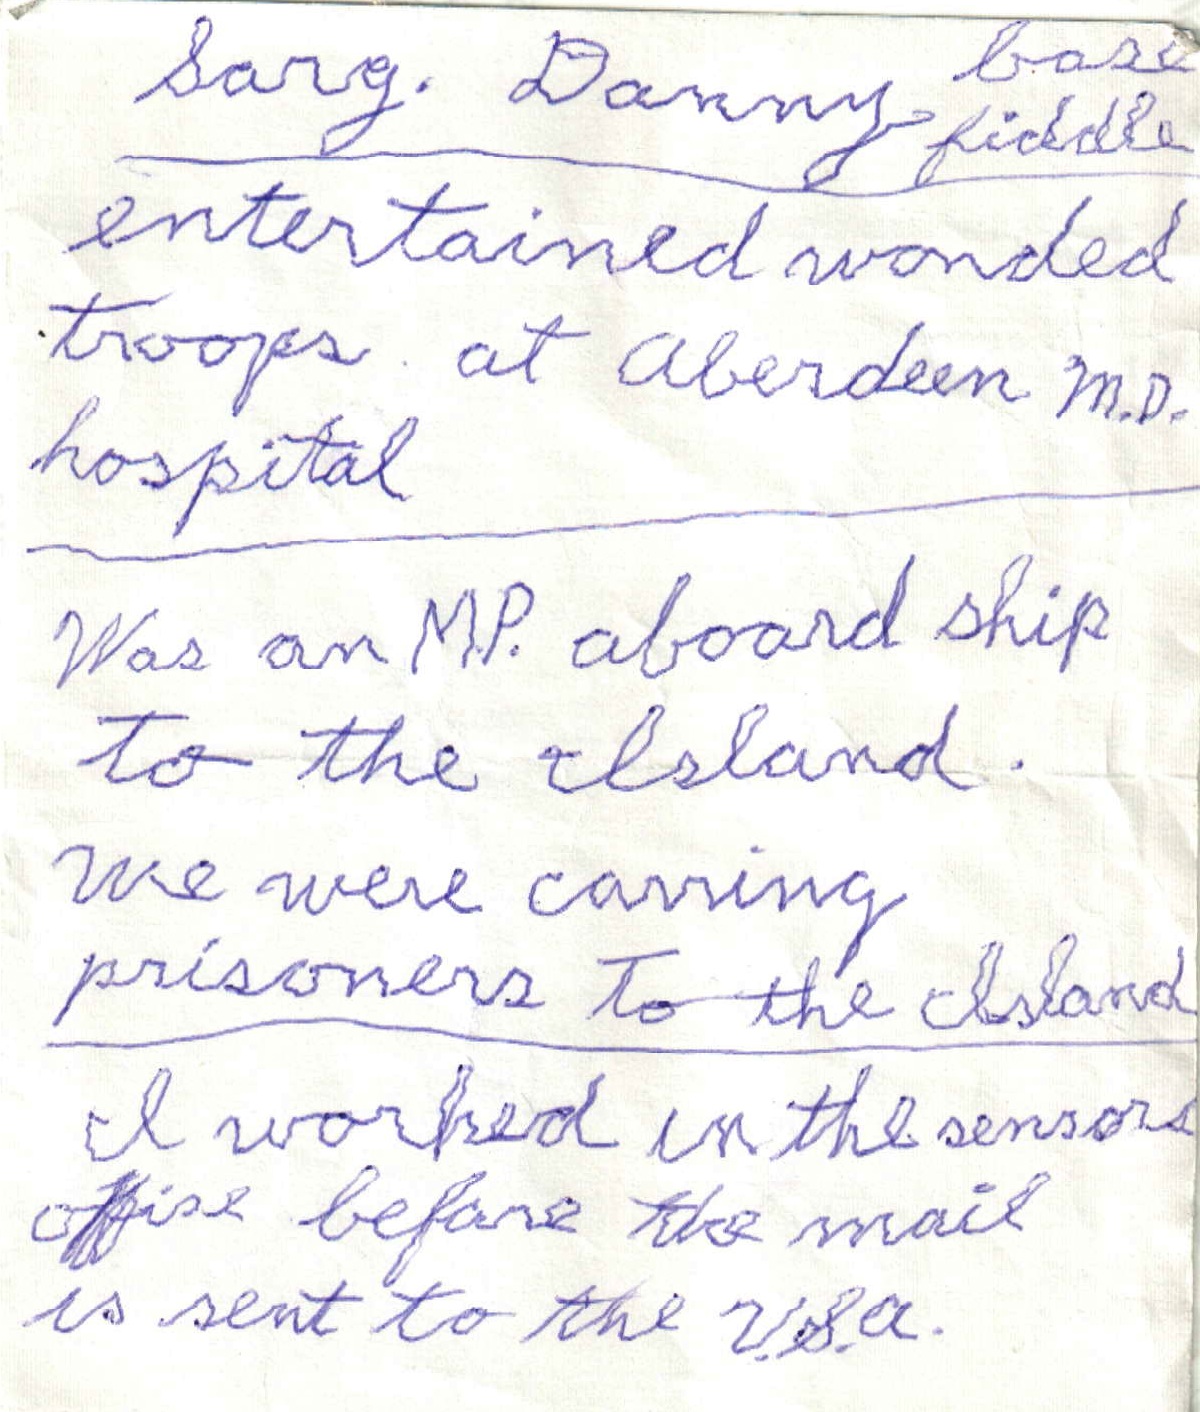 Sarg. Danny base
fiddle
entertained wonded
troops at Aberdeen M.D.
hospital
Was an M.P. aboard ship
to the Island.
We were carring
prisoners To the Island
I worked in the sensors
offise before the mail
is sent to the U.S.A.